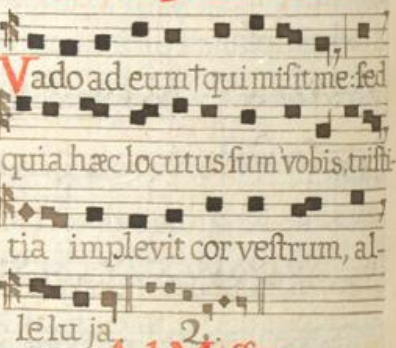 Vado ad eum † qui misit me: sed
quia hæc locutus sum vobis, tristi-
tia implevit cor vestrum, al-
lelu ja 2.